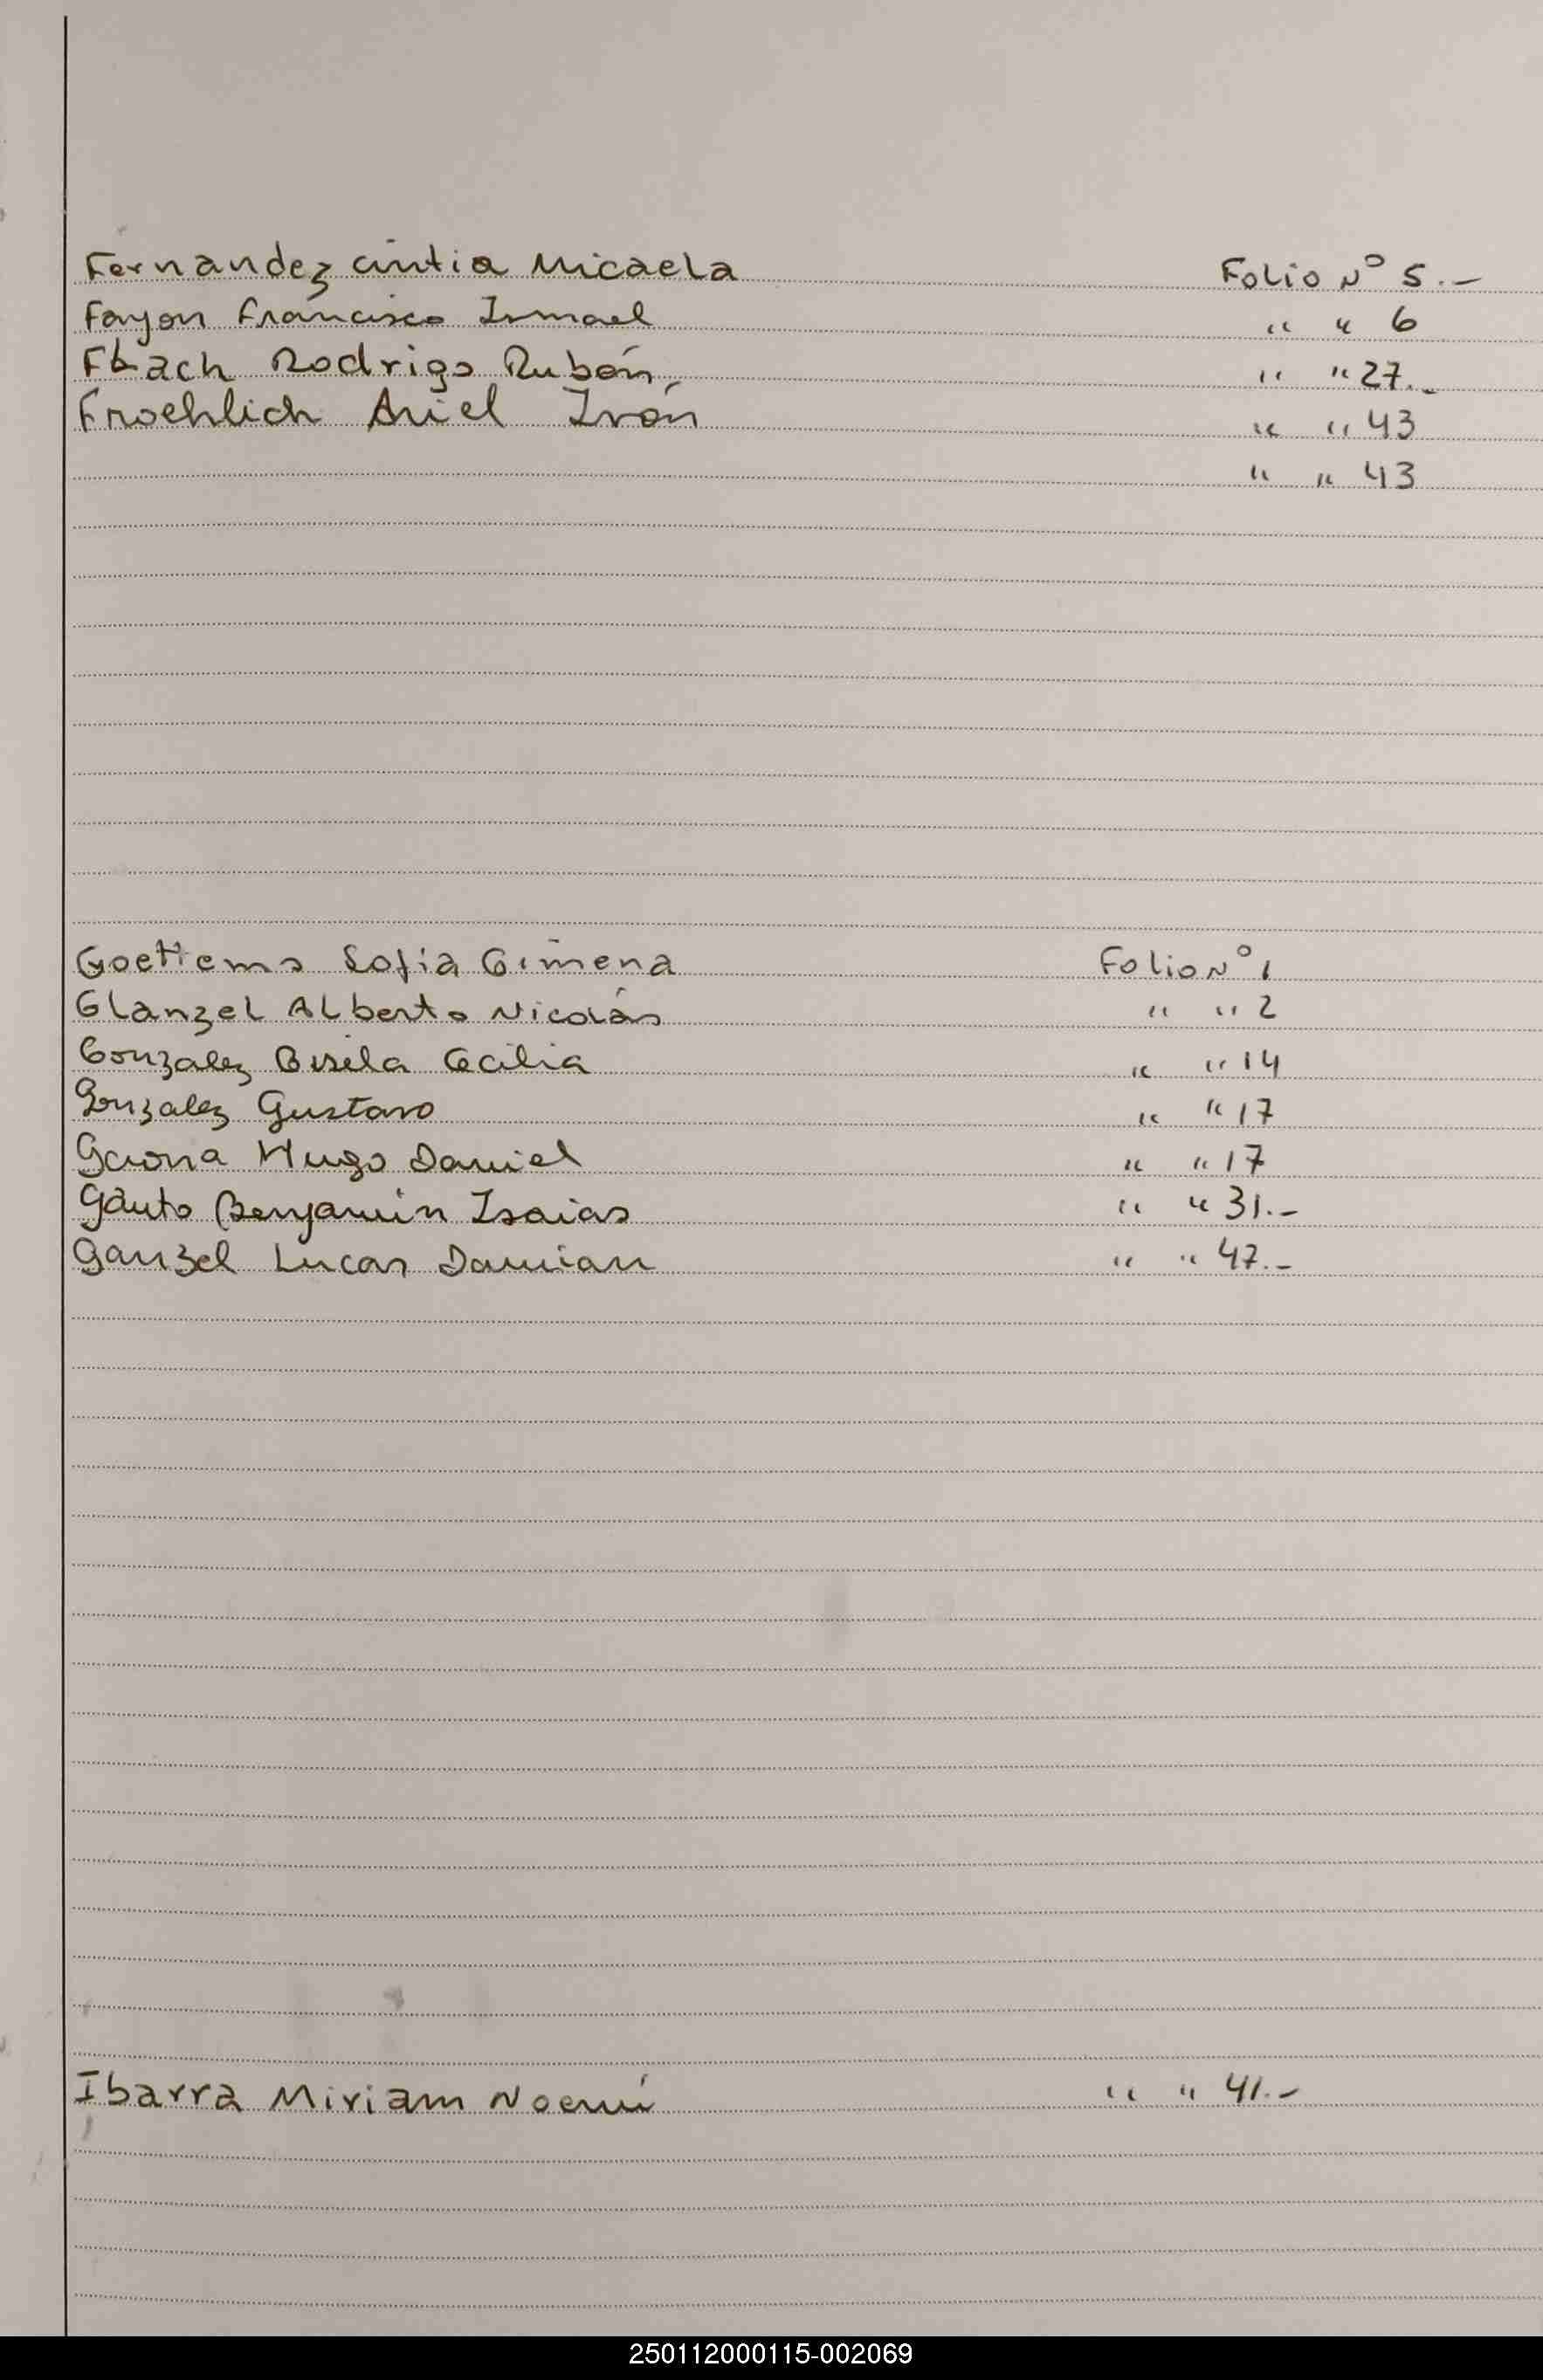 Fernandez Cintia Micaela Folio Nº 5.-
Fayon Francisco Ismael " " 6
Flach Rodrigo Rubén, " " 27.-
Froehlich Ariel Iván " " 43
" " 43
Goettems Sofia Gimena Folio Nº 1
Glanzel Alberto Nicolás " " 2
Gonzalez Gisela Cecilia " " 14
Gonzalez Gustavo " " 17
Gaona Hugo Daniel " " 17
Gauto Benjamin Isaias " " 31.-
Ganzel Lucas Damian " " 47.-
Ibarra Miriam Noemí " " 41.-
250112000115-002069